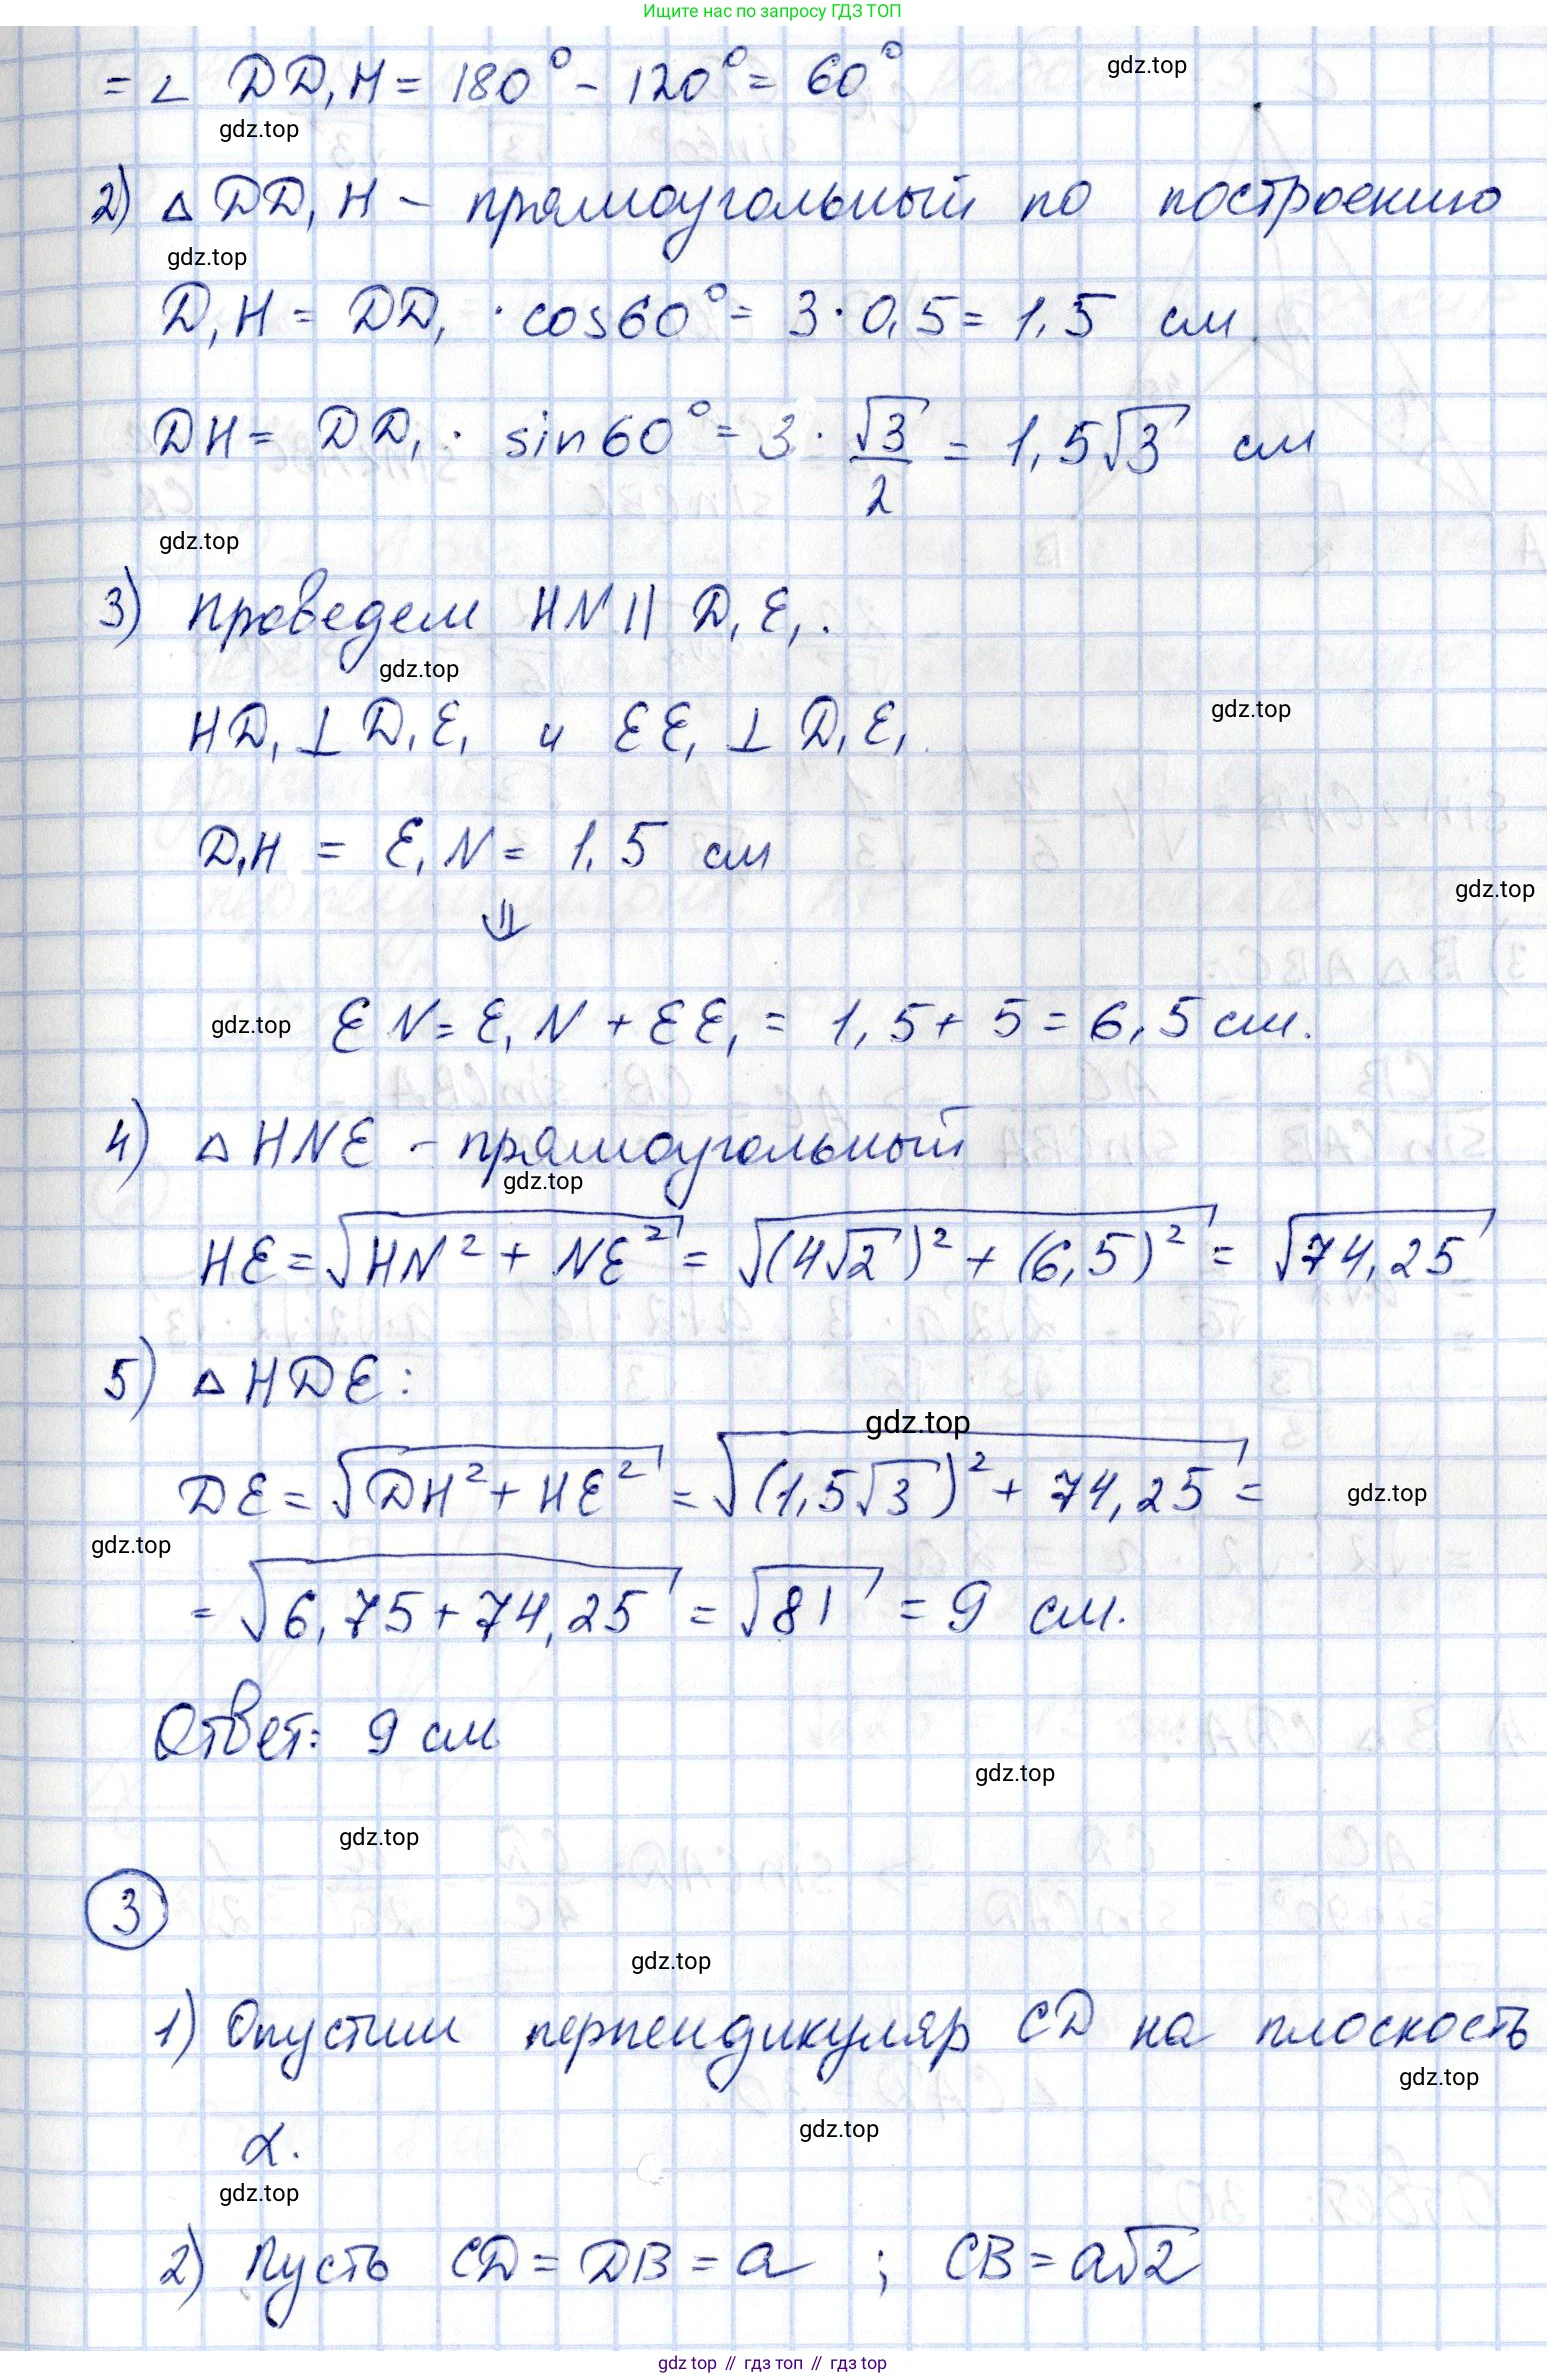 Ищите нас по запросу ГДЗ ТОП
= ∠ DD₁H = 180° - 120° = 60°
gdz.top
gdz.top
2) △ DD₁H - прямоугольный по построению
gdz.top
D₁H = DD₁ · cos60° = 3 · 0,5 = 1,5 см.
DH = DD₁ · sin60° = 3 · √3/2 = 1,5√3 см
gdz.top
3) Проведем HN || D₁E₁.
gdz.top
HD₁ ⊥ D₁E₁ и EE₁ ⊥ D₁E₁.
gdz.top
D₁H = E₁N = 1,5 см
gdz.top
⇓
gdz.top EN = E₁N + EE₁ = 1,5 + 5 = 6,5 см.
4) △ HNE - прямоугольный
gdz.top
HE = √(HN² + NE²) = √((4√2)² + (6,5)²) = √74,25
5) △ HDE:
gdz.top
DE = √(DH² + HE²) = √((1,5√3)² + 74,25) =
gdz.top
gdz.top
= √(6,75 + 74,25) = √81 = 9 см.
Ответ: 9 см.
gdz.top
gdz.top
3
gdz.top
1) Опустим перпендикуляр CD на плоскость
gdz.top
gdz.top
α.
gdz.top
2) Пусть CD = DB = a ; CB = a√2
gdz top // гдз топ // гдз top